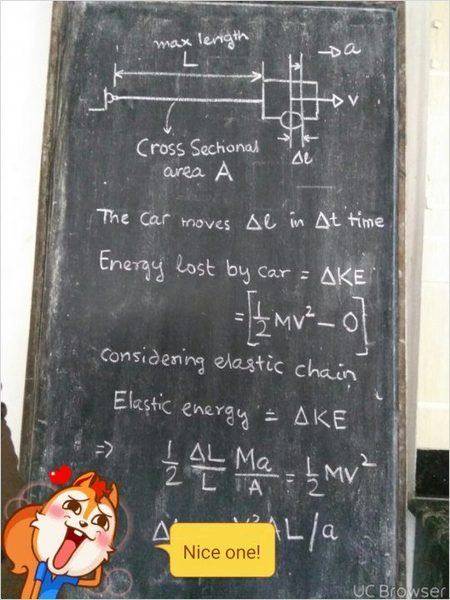 max length
L
→ a
→ v
Δl
Cross Sectional
area A
The car moves Δl in Δt time
Energy lost by car = ΔKE
= [1/2 MV² - 0]
considering elastic chain
Elastic energy = ΔKE
⇒ 1/2 ΔL/L Ma/A = 1/2 MV²
AL/a
Nice one!
UC Browser